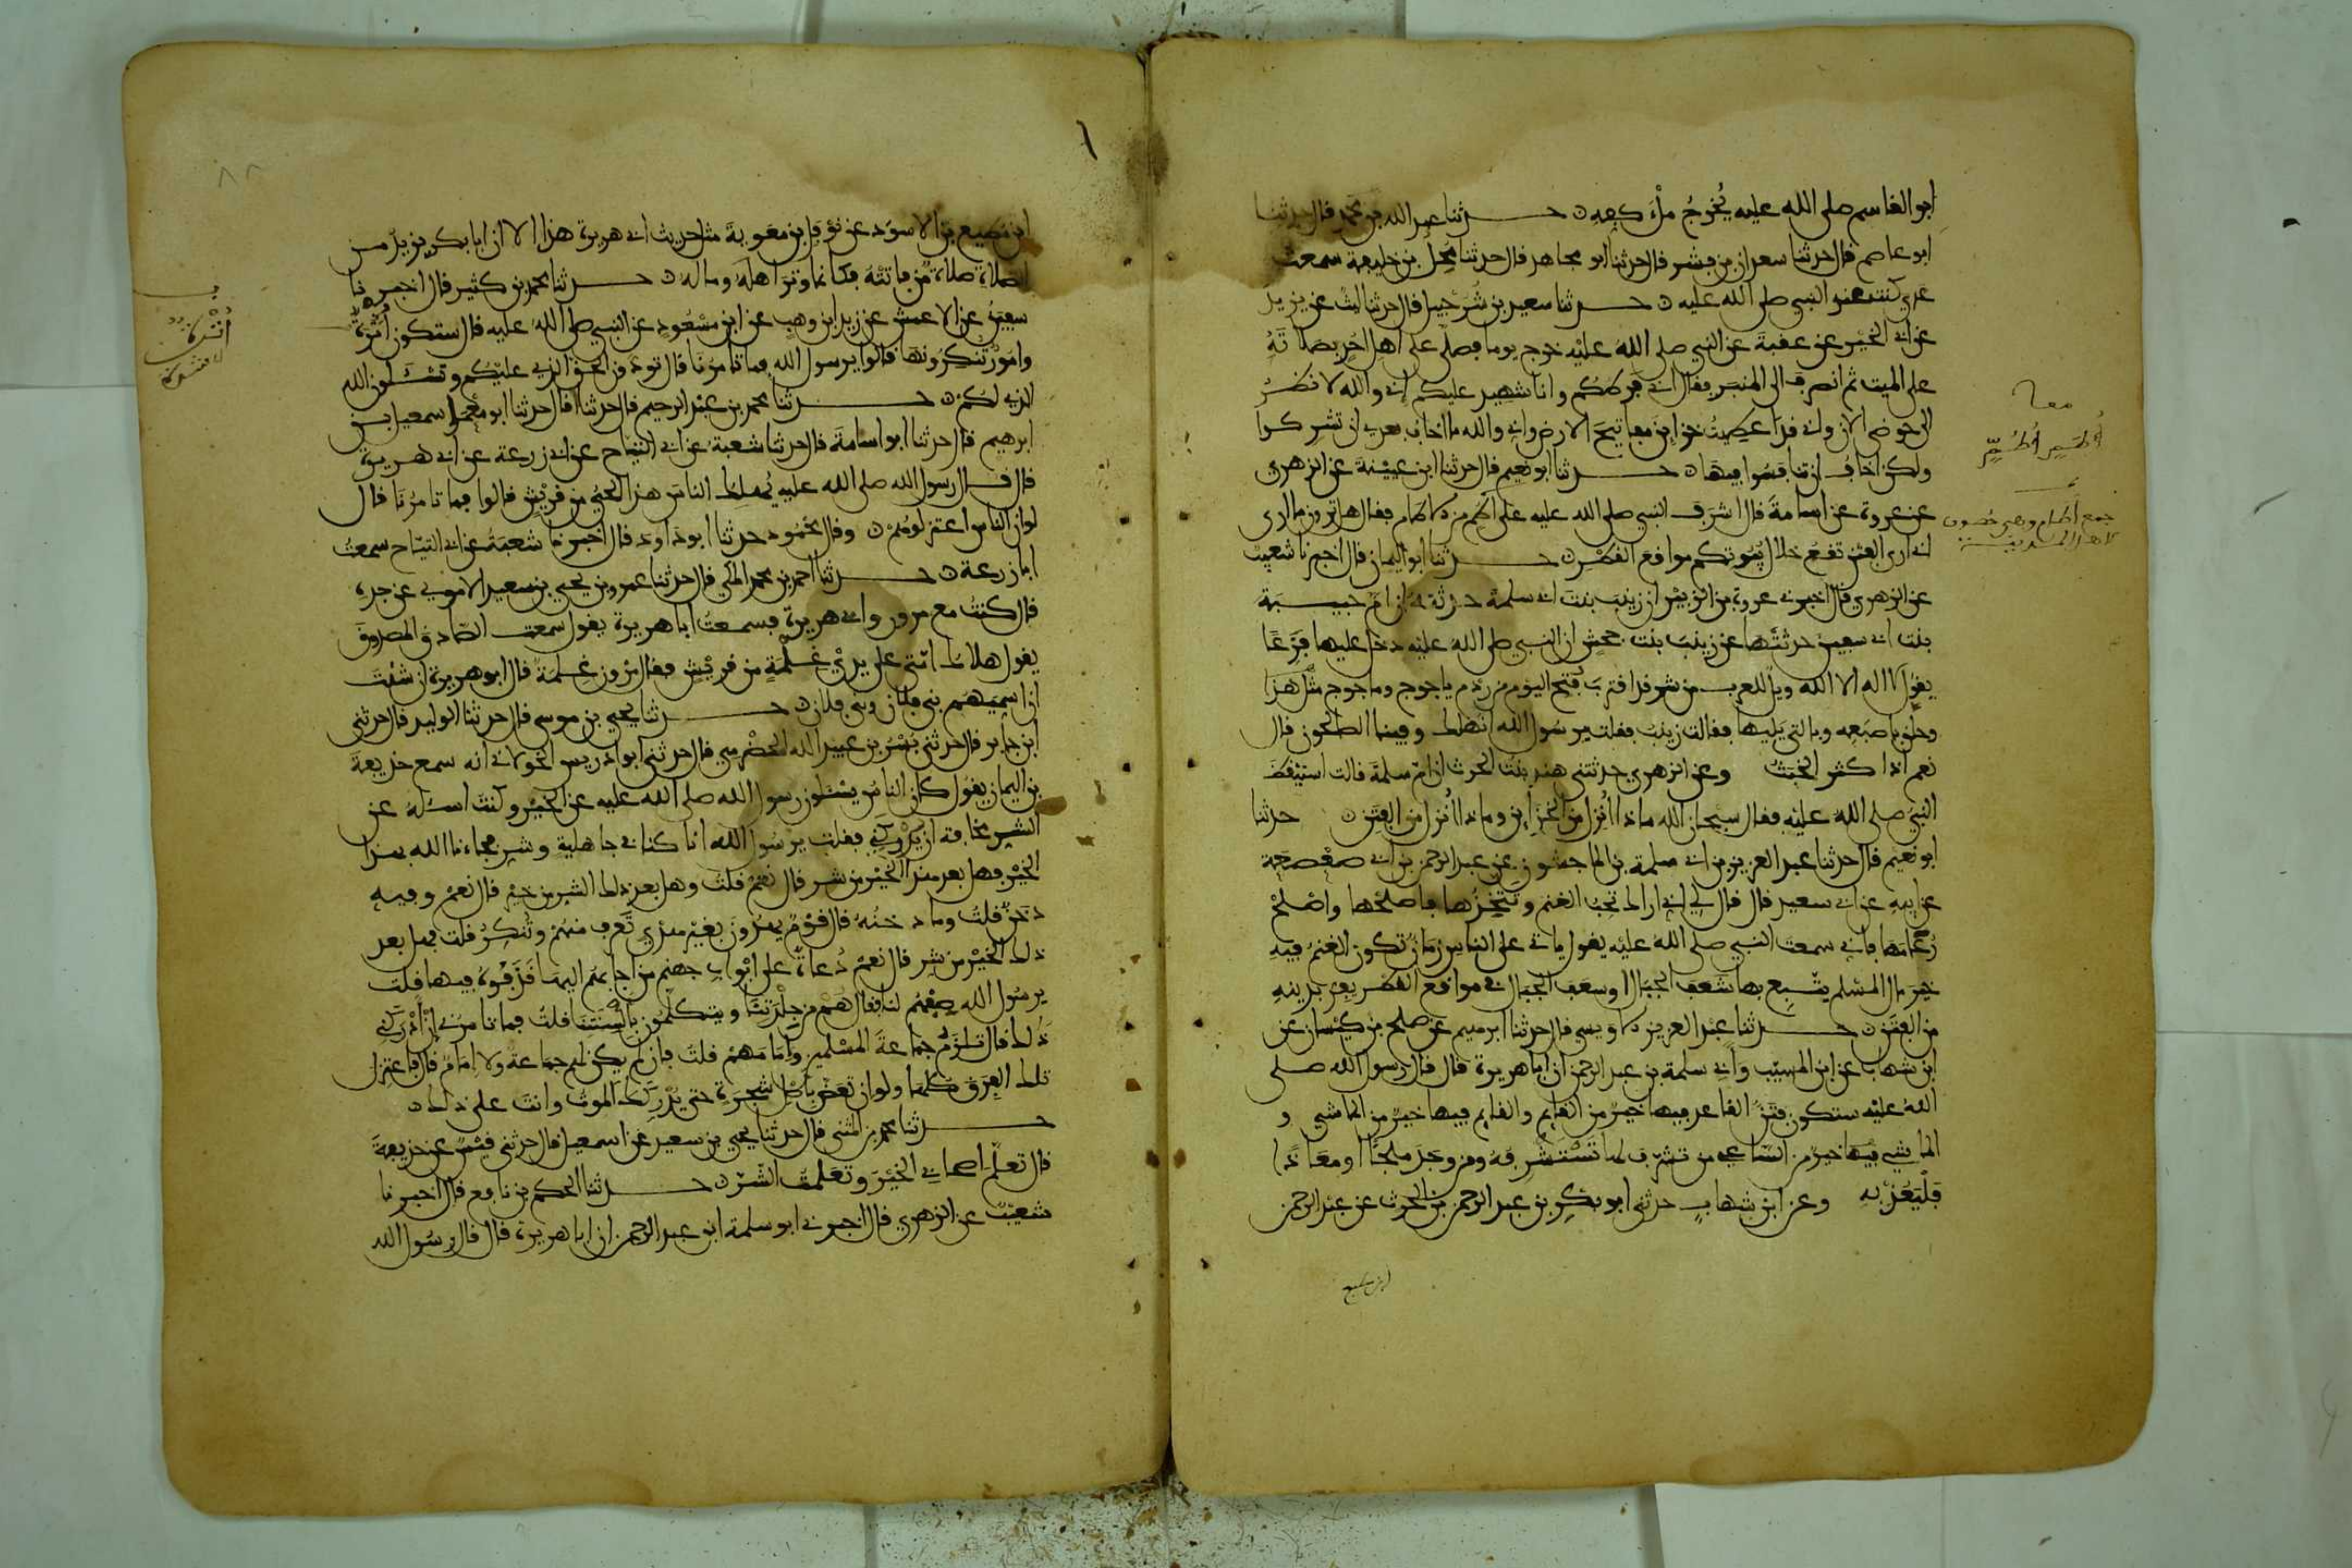 ابو القاسم صلى الله عليه يُخرجُ مِلْءَ كفِه ن حدثنا عبد الله بن محمد قال حدثنا
ابو عاصم قال حدثنا سعدان بن بشر قال حدثنا ابو مجاهد قال حدثنا مُحِلّ بن خليفة سمعت
عدي كنت عند النبي صلى الله عليه ن حدثنا سعيد بن شُرَحْبيل قال حدثنا ليث عن يزيد
عن ابي الخير عن عقبة عن النبي صلى الله عليه خرج يوما فصلى على اهل احد بصلاته
على الميت ثم انصرف الى المنبر فقال اني فرطكم وانا شهيد عليكم اني والله لانظر
الى حوضي الان واني قد اعطيتُ خزاين مفاتيح الارض واني والله ما اخاف بعدي ان تشركوا
ولكن اخافُ ان تنافسوا فيها ن حدثنا ابو نعيم قال حدثنا ابن عيينة عن الزهري
عن عروة عن اسامة قال اشرف النبي صلى الله عليه على اطم من الاطام فقال هل ترون ما ارى
اني ارى الفتن تقع خلال بُيُوتكم مواقع القطر ن حدثنا ابو اليمان قال اخبرنا شعيب
عن الزهري قال اخبرني عروة بن الزبير ان زينب بنت ابي سلمة حدثته ان ام حبيبة
بنت ابي سفين حدثتها عن زينب بنت جحش ان النبي صلى الله عليه دخل عليها فَزِعًا
يقول لا اله الا الله ويل للعرب من شر قد اقترب فُتح اليوم من ردم ياجوج وماجوج مثل هذا
وحلق باصبعه وبالتي يليها فقالت زينب فقلت يرسول الله انهلك وفينا الصالحون قال
نعم اذا كثر الخبث وعن الزهري حدثتني هند بنت الحرث ان ام سلمة قالت استيقظ
النبي صلى الله عليه فقال سبحان الله ماذا اُنزِل من الخزاين وماذا اُنزل من الفتن ن حدثنا
ابو نعيم قال حدثنا عبد العزيز بن ابي سلمة بن الماجشون عن عبد الرحمن بن ابي صعصعة
عن ابيه عن ابي سعيد قال قال لي اني اراك تحب الغنم وتتخذها فاصلحها واصلح
رُعَامَها فاني سمعت النبي صلى الله عليه يقول ياتي على الناس زمان تكون الغنم فيه
خير مال المسلم يتبع بها شعف الجبال او سعف الجبال في مواقع القطر يفر بدينه
من الفتن ن حدثنا عبد العزيز الاويسي قال حدثنا ابرهيم عن صلح بن كيسان عن
ابن شهاب عن ابن المسيب وابي سلمة بن عبد الرحمن ان ابا هريرة قال قال رسول الله صلى
الله عليه ستكون فتن القاعد فيها خير من القايم والقايم فيها خير من الماشي و
الماشي فيها خير من الساعي من تشرف لها تستشرفه ومن وجد ملجئا او معاذا
فليعُذْ به وعن ابن شهاب حدثني ابو بكر بن عبد الرحمن بن الحرث عن عبد الرحمن
ابن مطيع
معا
اُطُمٍ اُطُمٍ
جمع اُطُم وهي حصون
لاهل المدينة
ابن مطيع بن الاسود عن نوفل بن معوية مثل حديث ابي هريرة هذا الا ان ابا بكر يزيد من
الصلاة صلاة من فاتته فكانما وتر اهله وماله ن حدثنا محمد بن كثير قال اخبرنا
سفين عن الاعمش عن زيد ابن وهب عن ابن مسعود عن النبي صلى الله عليه قال ستكون اثرة
وامور تنكرونها قالوا يرسول الله فما تامرنا قال تودون الحق الذي عليكم وتسئلون الله
الذي لكم ن حدثنا محمد بن عبد الرحيم قال حدثنا قال حدثنا ابو معمر اسمعيل بن
ابرهيم قال حدثنا ابو اسامة قال حدثنا شعبة عن ابي التياح عن ابي زرعة عن ابي هريرة
قال قال رسول الله صلى الله عليه يُهلك الناس هذا الحي من قريش قالوا فما تامرنا قال
لو ان الناس اعتزلوهم ن وقال محمود حدثنا ابو داود قال اخبرنا شعبة عن ابي التياح سمعت
ابا زرعة ن حدثنا احمد بن محمد المكي قال حدثنا عمرو بن يحيى بن سعيد الاموي عن جده
قال كنت مع مروان وابي هريرة فسمعت ابا هريرة يقول سمعت الصادق المصدوق
يقول هلاك امتي على يدي غلمة من قريش فقال مروان غلمة قال ابو هريرة ان شئت
ان اسميهم بني فلان وبني فلان ن حدثنا يحيى بن موسى قال حدثنا الوليد قال حدثني
ابن جابر قال حدثني بسر بن عبيد الله الحضرمي قال حدثني ابو ادريس الخولاني انه سمع حذيفة
بن اليمان يقول كان الناس يسئلون رسول الله صلى الله عليه عن الخير وكنت اسئله عن
الشر مخافة ان يدركني فقلت يرسول الله انا كنا في جاهلية وشر فجاءنا الله بهذا
الخير فهل بعد هذا الخير من شر قال نعم قلت وهل بعد ذلك الشر من خير قال نعم وفيه
دخن قلت وما دخنه قال قوم يهدون بغير هديي تعرف منهم وتنكر قلت فهل بعد
ذلك الخير من شر قال نعم دُعاة على ابواب جهنم من اجابهم اليها قذفوه فيها قلت
يرسول الله صفهم لنا فقال هم من جلدتنا ويتكلمون بالسنتنا قلت فما تامرني ان ادركني
ذلك قال تلزم جماعة المسلمين وامامهم قلت فان لم يكن لهم جماعة ولا امام قال فاعتزل
تلك الفرق كلها ولو ان تعض باصل شجرة حتى يدركك الموت وانت على ذلك ن
حدثنا محمد بن المثنى قال حدثنا يحيى بن سعيد عن اسمعيل قال حدثني قيس عن حذيفة
قال تعلّم اصحابي الخير وتعلمت الشر ن حدثنا الحكم بن نافع قال اخبرنا
شعيب عن الزهري قال اخبرني ابو سلمة ابن عبد الرحمن ان ابا هريرة قال قال رسول الله